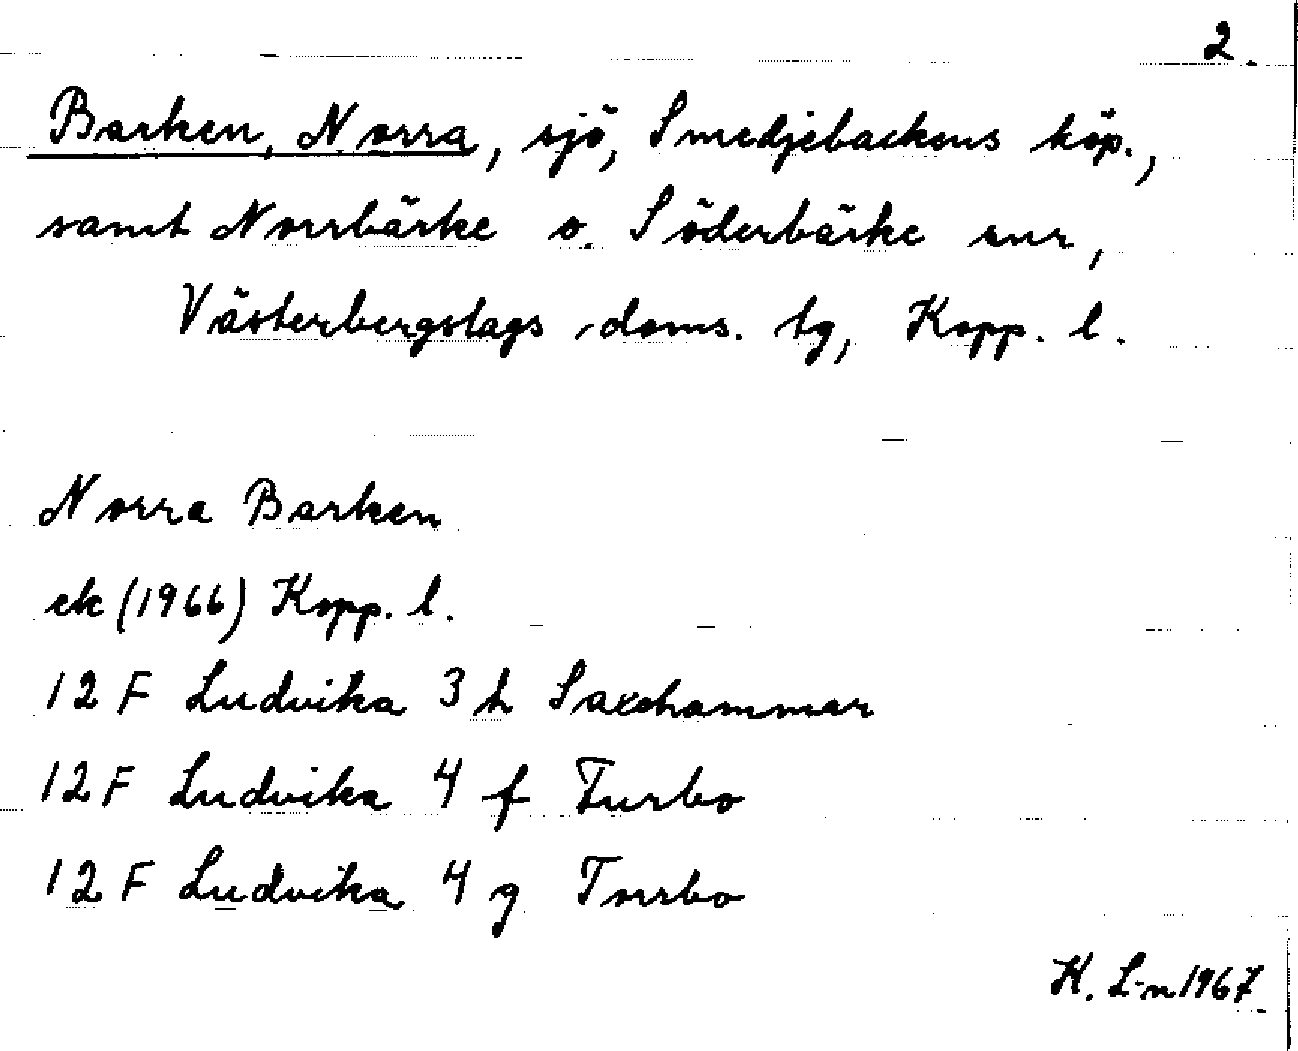 2.
Barken, Norra, sjö, Smedjebackens köp.,
samt Norrbärke o. Söderbärke snr,
Västerbergslags doms. tg, Kopp. l.
Norra Barken
ek (1966) Kopp. l.
12 F Ludvika 3 h Saxehammar
12 F Ludvika 4 f Turbo
12 F Ludvika 4 g Torrbo
K. L-n 1967